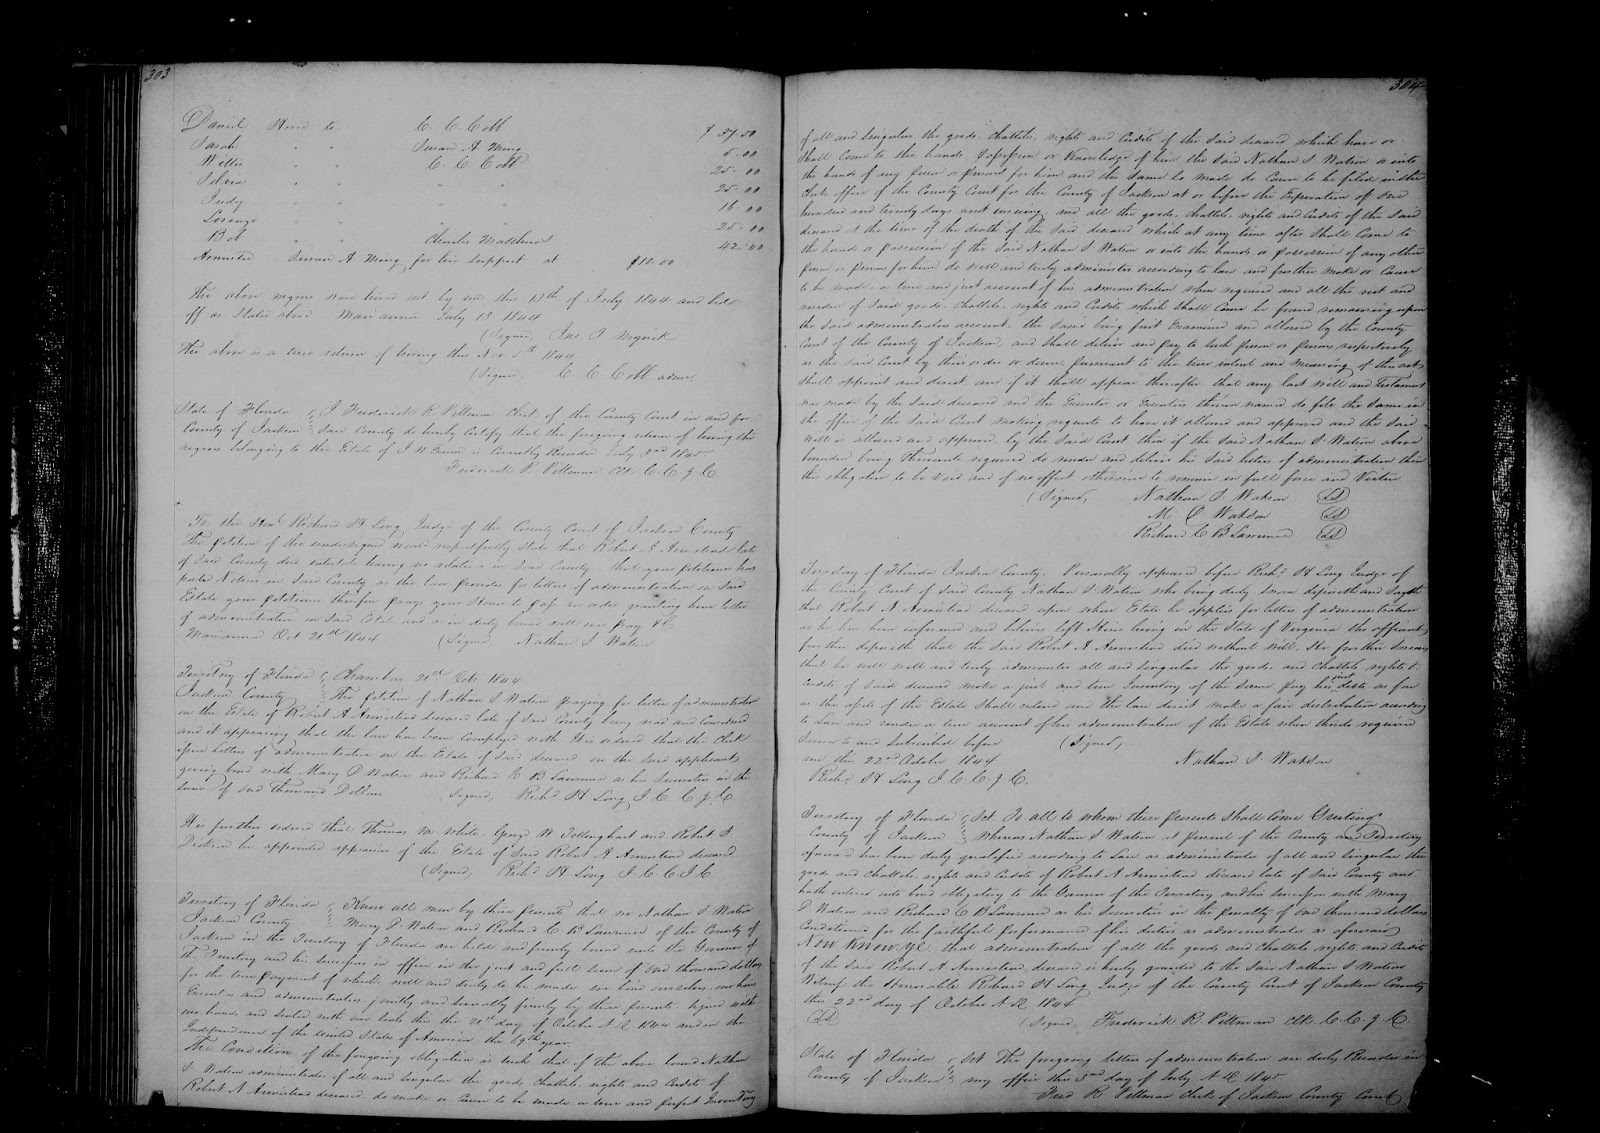 303
Daniel Hired to C. C. Cobb $ 37.50
Sarah " " Susan A Ming 5.00
Willis " " C C Cobb 25.00
Silvia " " " " 25.00
Judy " " " " 16.00
Lorenzo " " " " 25.00
Bob " " Charles 42.00
Armisted Susan A Ming for his support at $10.00
The above negroes were hired out by me this 13th of July 1844 and bid
off as Stated above Marianna July 13 1844
(Signed, Jno. P Myrick
The above is a true return of hiring this Nov 5th 1844
(Signed, C C Cobb admr
State of Florida I Frederick R. Pittman Clerk of the County Court in and for
County of Jackson Said County do hereby Certify that the foregoing return of hiring the
negroes belonging to the Estate of J W is Correctly Recorded July 3rd 1845
Frederick R. Pittman Clk C. C. J. C.
To the Honl Richard H Long Judge of the County Court of Jackson County
The petition of the undersigned would respectfully State that Robert A Armistead late
of Said County died intestate leaving no relation in Said County that your petitioner has
posted Notices in Said County as the law provides for letters of administration on Said
Estate your petitioner therefore prays your Honor to pass an order granting him letters
of administration on Said Estate and as in duty bound will ever pray &c
Marianna Oct 21st 1844 (Signed, Nathan S Watson
Territory of Florida Chambers 21st Octo 1844
Jackson County The petition of Nathan S Watson praying for letters of administration
on the Estate of Robert A Armistead deceased late of Said County being read and Considered
and it appearing that the law has been Complyed with it is ordered that the Clerk
issue letters of administration on the Estate of Said deceased on the Said applicant
giving bond with Mary P Watson and Richard C B Lawrence as his Securities in the
sum of one thousand Dollars (Signed, Richd H Long J. C. C. J. C
It is further ordered that Thomas M White George W Tillinghast and Robert S
Dickson be appointed appraisers of the Estate of Said Robert A Armistead deceased
(Signed, Richd H Long J. C. C. J. C.
Territory of Florida Know all men by these presents that we Nathan S Watson
Jackson County Mary P Watson and Richard C. B Lawrence of the County of
Jackson in the Territory of Florida are held and firmly bound unto the Governor of
the Territory and his Successors in office in the just and full sum of one thousand dollars
for the true payment of which well and truly to be made we bind ourselves our heirs
Executors and administrators jointly and severally firmly by these presents signed with
our hands and Sealed with our Seals this the 21st day of October A. D 1844 and in the
Independence of the United States of America the 69th year
The Condition of the foregoing obligation is Such that if the above bound Nathan
S. Watson administrator of all and Singular the goods Chattels rights and Credits of
Robert A Armistead deceased do make or Cause to be made a true and perfect Inventory
304
of all and singular the goods, Chattels, rights and Credits of the Said deceased which have or
Shall Come to the hands, possession or Knowledge of him the Said Nathan S. Watson or into
the hands of any person or persons for him and the same So made do Cause to be filed in the
Clerks office of the County Court for the County of Jackson at or before the Expiration of one
hundred and twenty days next ensuing, and all the goods, Chattels, rights and Credits of the Said
deceased at the time of the death of the Said deceased which at any time after Shall Come to
the hands or possession of the Said Nathan S. Watson or into the hands or possession of any other
person or persons for him do well and truly administer according to law and further make or Cause
to be made, a true and just account of his administration when required and all the rest and
residue of Said goods, Chattels, rights and Credits which Shall Come be found remaining upon
the Said administrators account, the Same being first Examined and allowed by the County
Court of the County of Jackson, and shall deliver and pay to Such person or persons respectively
as the Said Court by their order or decree pursuant to the true intent and meaning of the act
Shall appoint and direct and if it shall appear thereafter that any last will and Testament
was made by the Said deceased and the Executor or Executors therein named do file the Same in
the office of the Said Court making request to have it allowed and approved and the Said
Will is allowed and approved by the Said Court then if the Said Nathan S. Watson above
bounden being thereunto required do render and deliver his Said letters of administration then
this obligation to be Void and of no effect otherwise to remain in full force and Virtue
(Signed, Nathan S. Watson LS
M. P Watson LS
Richard C B Lawrence LS
Territory of Florida Jackson County, Personally appeared before Richd H Long Judge of
the County Court of Said County Nathan S. Watson who being duly Sworn deposeth and Sayth
that Robert A Armistead deceased upon whose Estate he applies for letters of administration
as he has been informed and believes left Heirs living in the State of Virginia this affiant
further deposeth that the Said Robert A Armistead died without Will. He further Swears
that he will well and truly administer all and Singular the goods and Chattels rights &
Credits of Said deceased make a just and true Inventory of the Same pay his just debts as far
as the assets of the Estate Shall extend and the law direct make a fair distribution according
to Law and render a true account of his administration of the Estate when thereto required
Sworn to and Subscribed before (Signed,
me the 22nd October 1844 Nathan S. Watson
Richd H Long J. C. C. J. C.
Territory of Florida Sct. To all to whom these presents Shall Come Greeting
County of Jackson Whereas Nathan S Watson at present of the County and Territory
aforesaid has been duly qualified according to Law as administrator of all and Singular the
goods and Chattels, rights and Credits of Robert A Armistead deceased late of Said County and
hath entered into bond obligatory to the Governor of the Territory and his Successors with Mary
P Watson and Richard C B Lawrence as his Securities in the penalty of one thousand dollars
Conditioned for the faithful performance of his duties as administrator as aforesaid
Now Know ye that administration of all the goods and Chattels, rights and Credits
of the Said Robert A Armistead deceased is hereby granted to the Said Nathan S Watson
Witness the Honorable Richard H Long Judge of the County Court of Jackson County
this 22nd day of October A. D. 1844
LS (Signed, Frederick R. Pittman Clk. C. C. J. C.
State of Florida Sct The foregoing letters of administration are duly Recorded in
County of Jackson my office this 3rd day of July A. D. 1845
Fred R Pittman Clerk of Jackson County Court